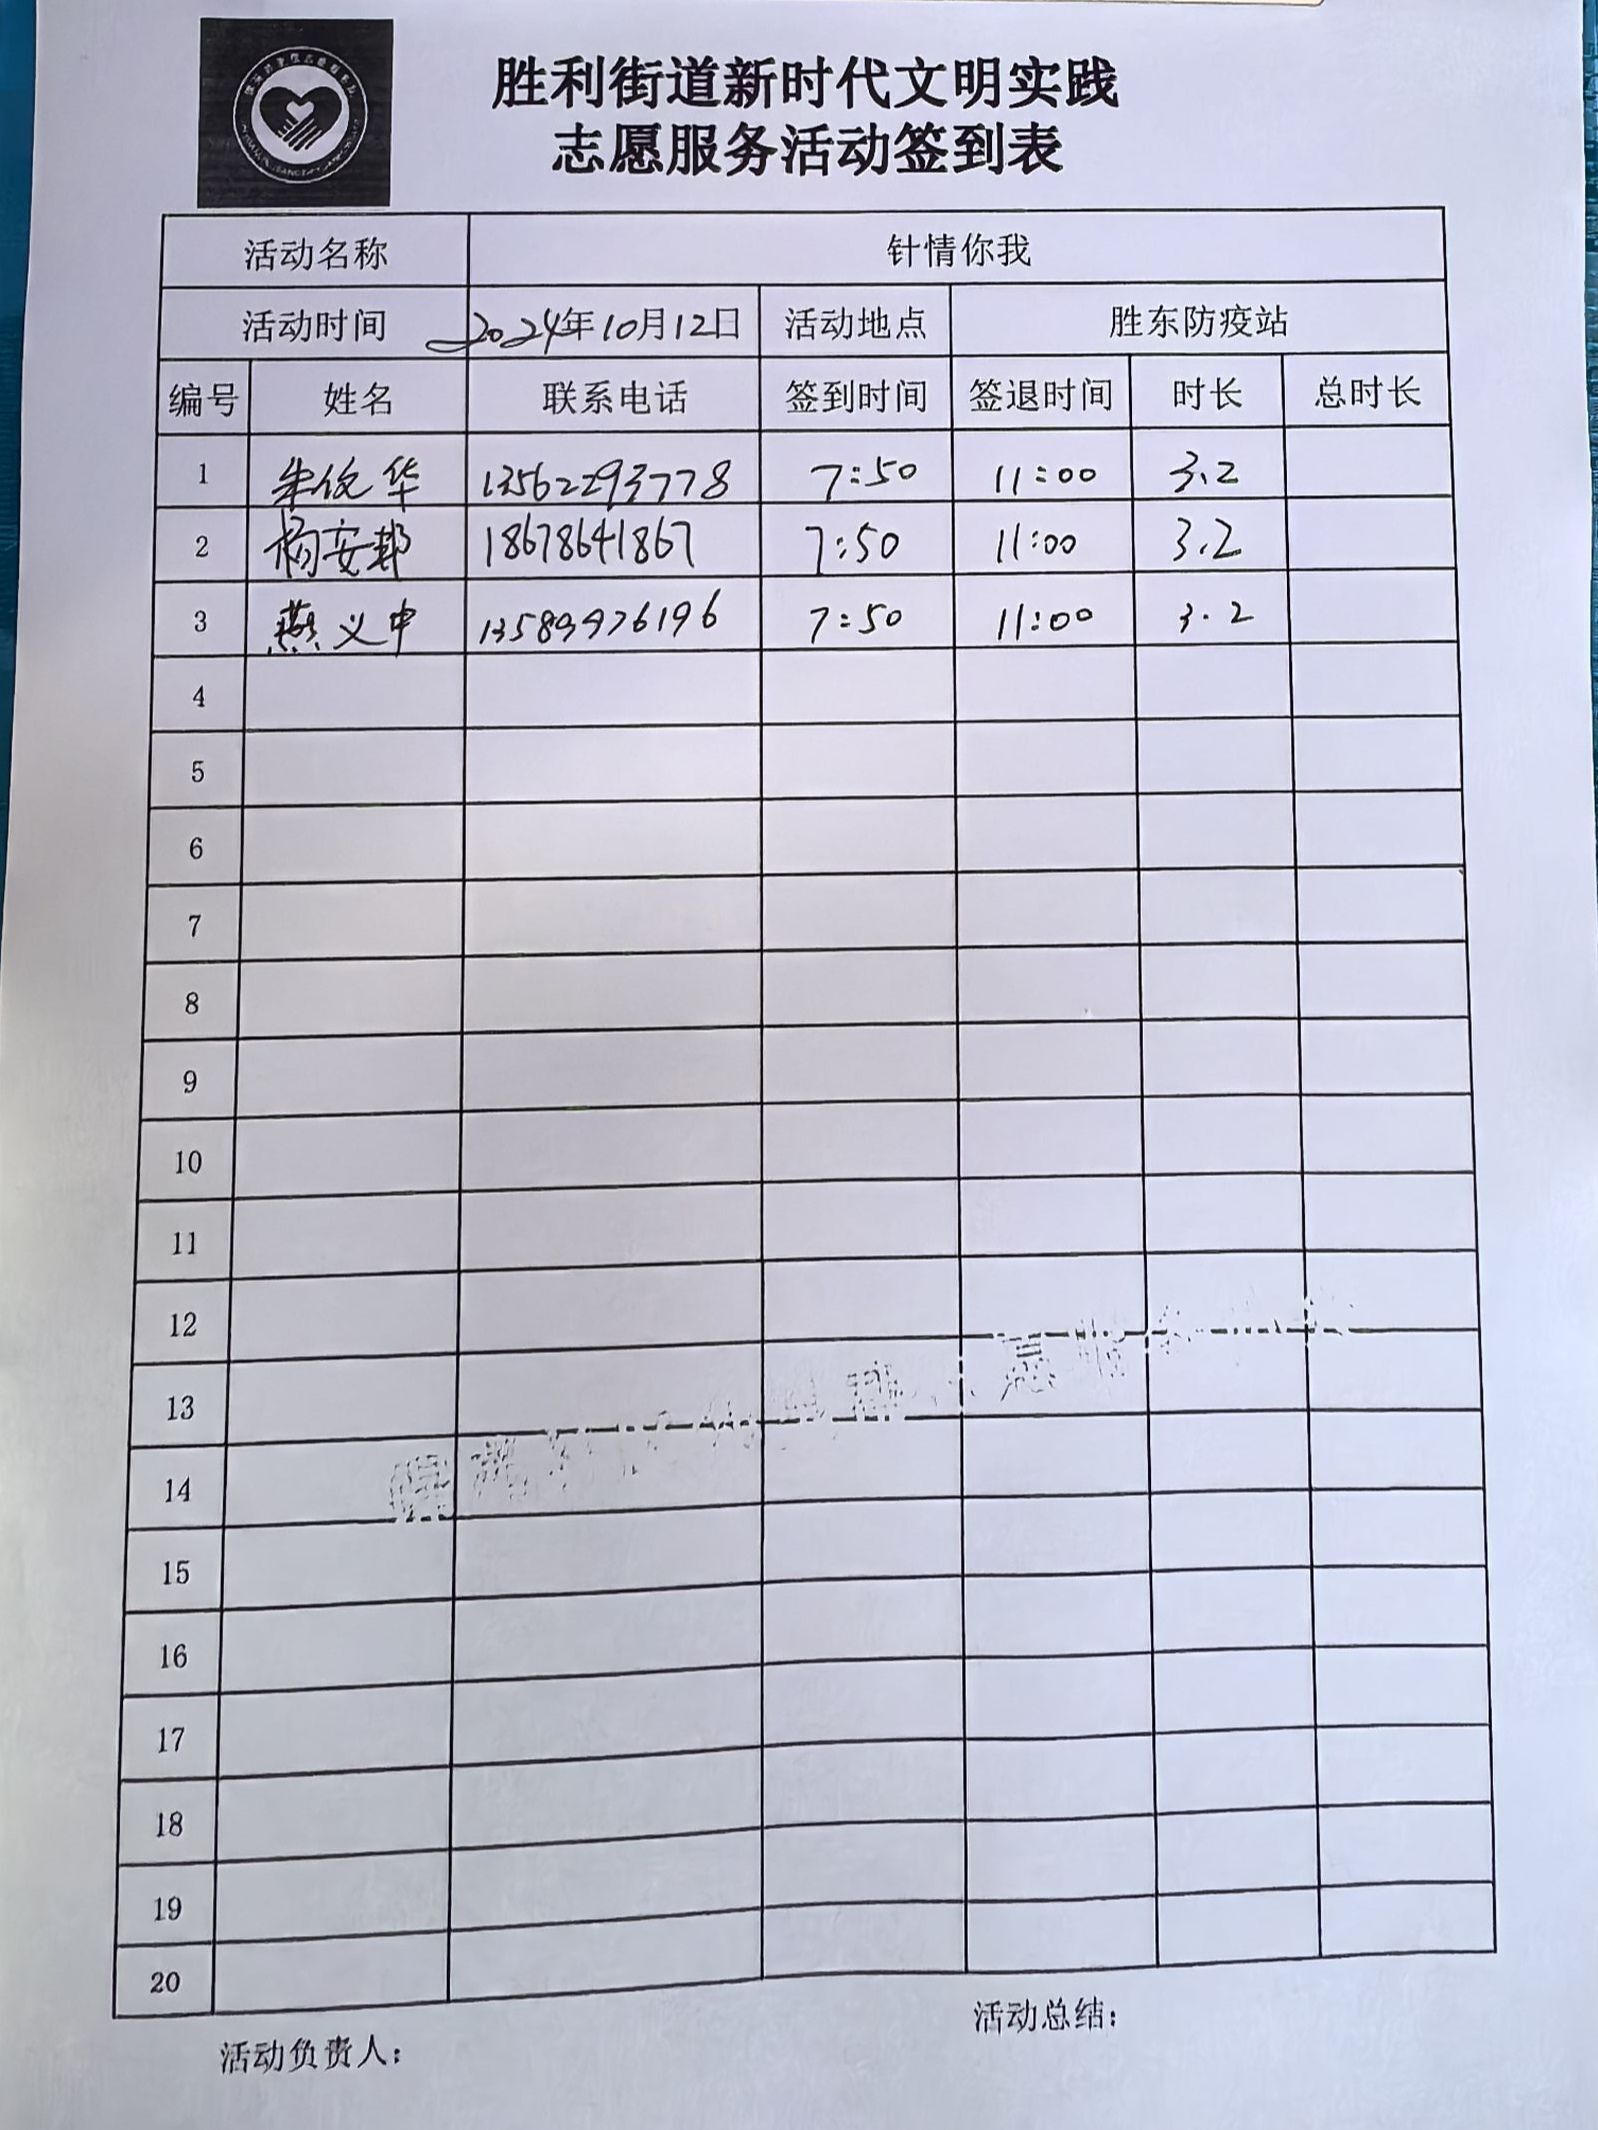 胜利街道新时代文明实践
志愿服务活动签到表
活动名称 针情你我
活动时间 2024年10月12日 活动地点 胜东防疫站
编号 姓名 联系电话 签到时间 签退时间 时长 总时长
1 朱俊华 13562293778 7:50 11:00 3.2
2 杨安邦 18678641867 7:50 11:00 3.2
3 燕义中 13589976196 7:50 11:00 3.2
4
5
6
7
8
9
10
11
12
13
14
15
16
17
18
19
20
活动总结:
活动负责人: